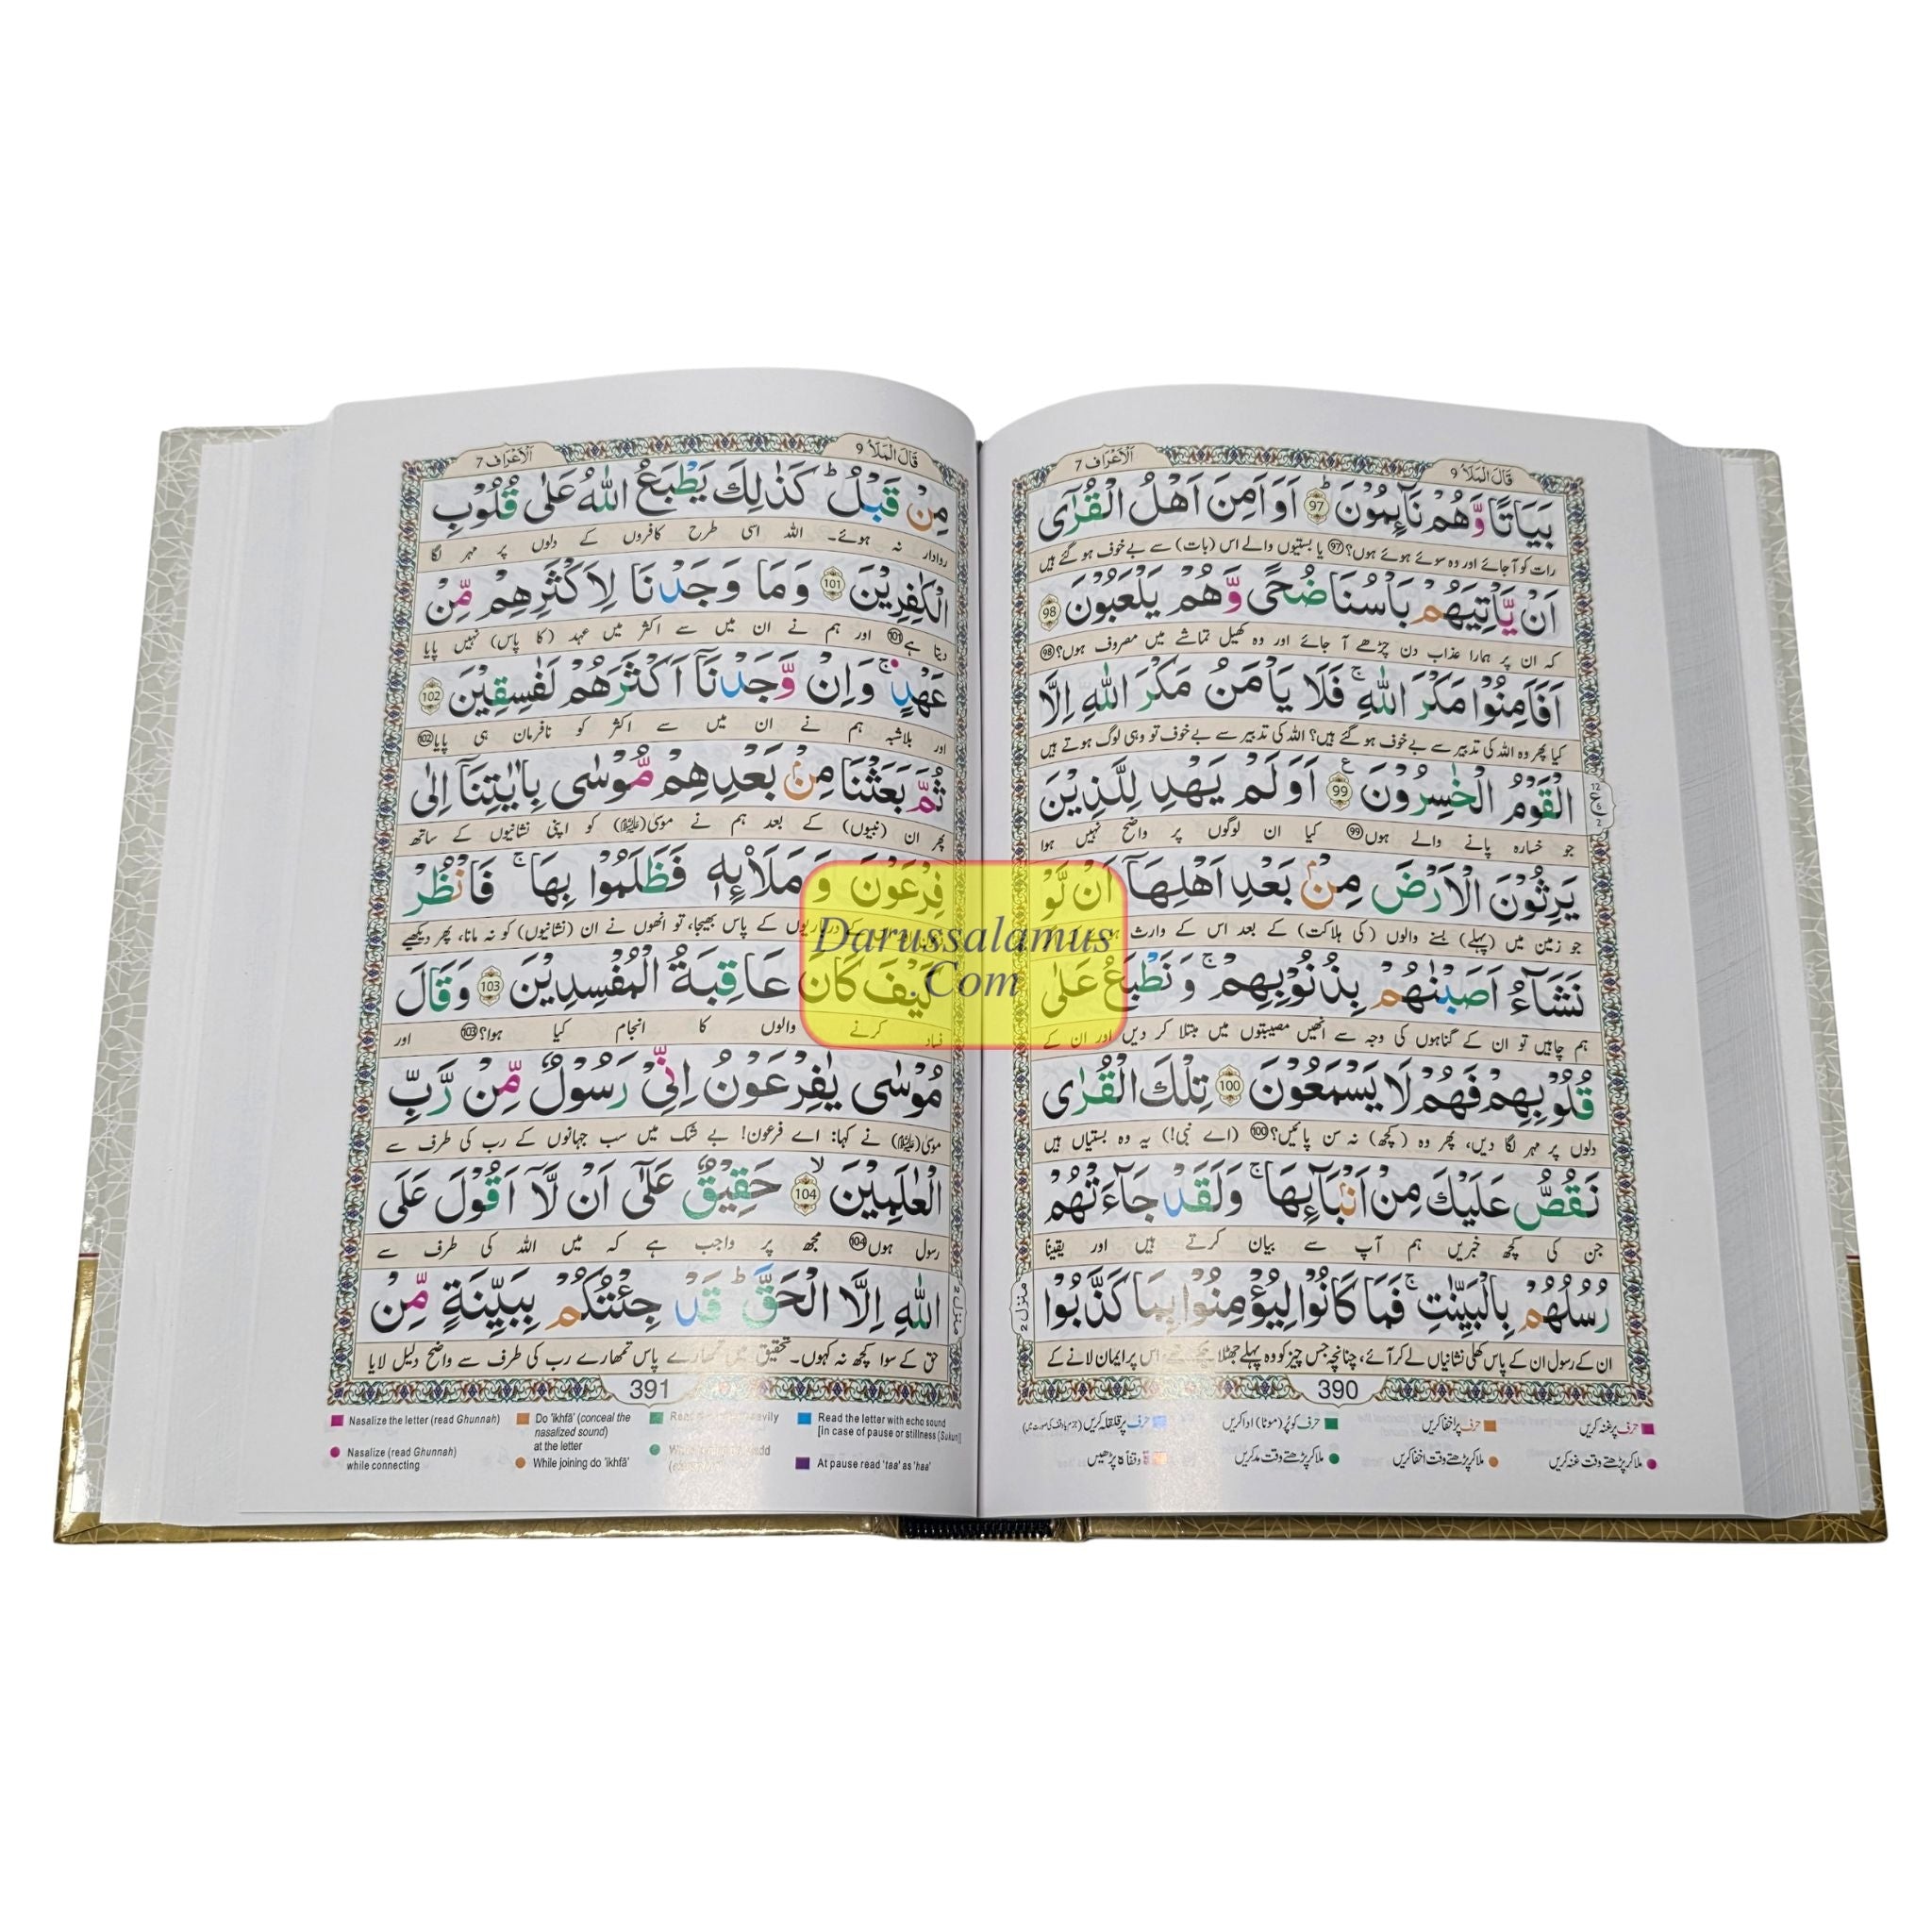 قَالَ الْمَلَاُ 9
اَلْاَعْرَاف 7
بَيَاتًا وَّهُمْ نَآئِمُوْنَ ؕ 97 اَوَاَمِنَ اَهْلُ الْقُرٰٓى
رات کو آ جائے اور وہ سوئے ہوئے ہوں؟ 97 یا بستیوں والے اس (بات) سے بے خوف ہو گئے ہیں
اَنْ يَّاْتِيَهُمْ بَاْسُنَا ضُحًى وَّهُمْ يَلْعَبُوْنَ 98
کہ ان پر ہمارا عذاب دن چڑھے آ جائے اور وہ کھیل تماشے میں مصروف ہوں؟ 98
اَفَاَمِنُوْا مَكْرَ اللّٰهِ ۚ فَلَا يَاْمَنُ مَكْرَ اللّٰهِ اِلَّا
کیا پھر وہ اللہ کی تدبیر سے بے خوف ہو گئے ہیں؟ اللہ کی تدبیر سے بے خوف تو وہی لوگ ہوتے ہیں
الْقَوْمُ الْخٰسِرُوْنَ 99 اَوَلَمْ يَهْدِ لِلَّذِيْنَ
12
ع
6
2
جو خسارہ پانے والے ہوں 99 کیا ان لوگوں پر واضح نہیں ہوا
يَرِثُوْنَ الْاَرْضَ مِنْۢ بَعْدِ اَهْلِهَاۤ اَنْ لَّوْ
جو زمین میں (پہلے) بسنے والوں (کی ہلاکت) کے بعد اس کے وارث
نَشَآءُ اَصَبْنٰهُمْ بِذُنُوْبِهِمْ ۚ وَنَطْبَعُ عَلٰى
ہم چاہیں تو ان کے گناہوں کی وجہ سے انھیں مصیبتوں میں مبتلا کر دیں اور ان کے
قُلُوْبِهِمْ فَهُمْ لَا يَسْمَعُوْنَ 100 تِلْكَ الْقُرٰى
دلوں پر مہر لگا دیں، پھر وہ (کچھ) نہ سن پائیں؟ 100 (اے نبی!) یہ وہ بستیاں ہیں
نَقُصُّ عَلَيْكَ مِنْ اَنْۢبَآئِهَا ۚ وَلَقَدْ جَآءَتْهُمْ
جن کی کچھ خبریں ہم آپ سے بیان کرتے ہیں اور یقینًا
رُسُلُهُمْ بِالْبَيِّنٰتِ ۚ فَمَا كَانُوْا لِيُؤْمِنُوْا بِمَا كَذَّبُوْا
منزل 2
ان کے رسول ان کے پاس کھلی نشانیاں لے کر آئے، چنانچہ جس چیز کو وہ پہلے جھٹلا چکے تھے، اس پر ایمان لانے کے
390
حرف پر غنہ کریں
حرف پر اخفا کریں
حرف کو پُر (موٹا) ادا کریں
حرف پر قلقلہ کریں
ملا کر پڑھتے وقت غنہ کریں
ملا کر پڑھتے وقت اخفا کریں
ملا کر پڑھتے وقت مد کریں
وقفاً ہ پڑھیں
قَالَ الْمَلَاُ 9
اَلْاَعْرَاف 7
مِنْ قَبْلُ ؕ كَذٰلِكَ يَطْبَعُ اللّٰهُ عَلٰى قُلُوْبِ
روادار نہ ہوئے۔ اللہ اسی طرح کافروں کے دلوں پر مہر لگا
الْكٰفِرِيْنَ 101 وَمَا وَجَدْنَا لِاَكْثَرِهِمْ مِّنْ
دیتا ہے 101 اور ہم نے ان میں سے اکثر میں عہد (کا پاس) نہیں پایا
عَهْدٍ ۚ وَاِنْ وَّجَدْنَاۤ اَكْثَرَهُمْ لَفٰسِقِيْنَ 102
اور بلاشبہ ہم نے ان میں سے اکثر کو نافرمان ہی پایا 102
ثُمَّ بَعَثْنَا مِنْۢ بَعْدِهِمْ مُّوْسٰى بِاٰيٰتِنَاۤ اِلٰى
پھر ان (نبیوں) کے بعد ہم نے موسیٰ (علیہ السلام) کو اپنی نشانیوں کے ساتھ
فِرْعَوْنَ وَمَلَا۟ئِهٖ فَظَلَمُوْا بِهَا ۚ فَانْظُرْ
درباریوں کے پاس بھیجا، تو انھوں نے ان (نشانیوں) کو نہ مانا، پھر دیکھیے
كَيْفَ كَانَ عَاقِبَةُ الْمُفْسِدِيْنَ 103 وَقَالَ
فساد کرنے والوں کا انجام کیا ہوا؟ 103 اور
مُوْسٰى يٰفِرْعَوْنُ اِنِّيْ رَسُوْلٌ مِّنْ رَّبِّ
موسیٰ (علیہ السلام) نے کہا: اے فرعون! بے شک میں سب جہانوں کے رب کی طرف سے
الْعٰلَمِيْنَ ۙ 104 حَقِيْقٌ عَلٰٓى اَنْ لَّاۤ اَقُوْلَ عَلَى
رسول ہوں 104 مجھ پر واجب ہے کہ میں اللہ کی طرف سے
اللّٰهِ اِلَّا الْحَقَّ ؕ قَدْ جِئْتُكُمْ بِبَيِّنَةٍ مِّنْ
منزل 2
حق کے سوا کچھ نہ کہوں۔ تحقیق میں تمھارے پاس تمھارے رب کی طرف سے واضح دلیل لایا
391
Nasalize the letter (read Ghunnah)
Do 'ikhfā' (conceal the
nasalized sound)
at the letter
Read the letter with echo sound
[in case of pause or stillness (Sukun)]
Nasalize (read Ghunnah)
while connecting
While joining do 'ikhfā'
At pause read 'taa' as 'haa'
Darussalamus
.Com